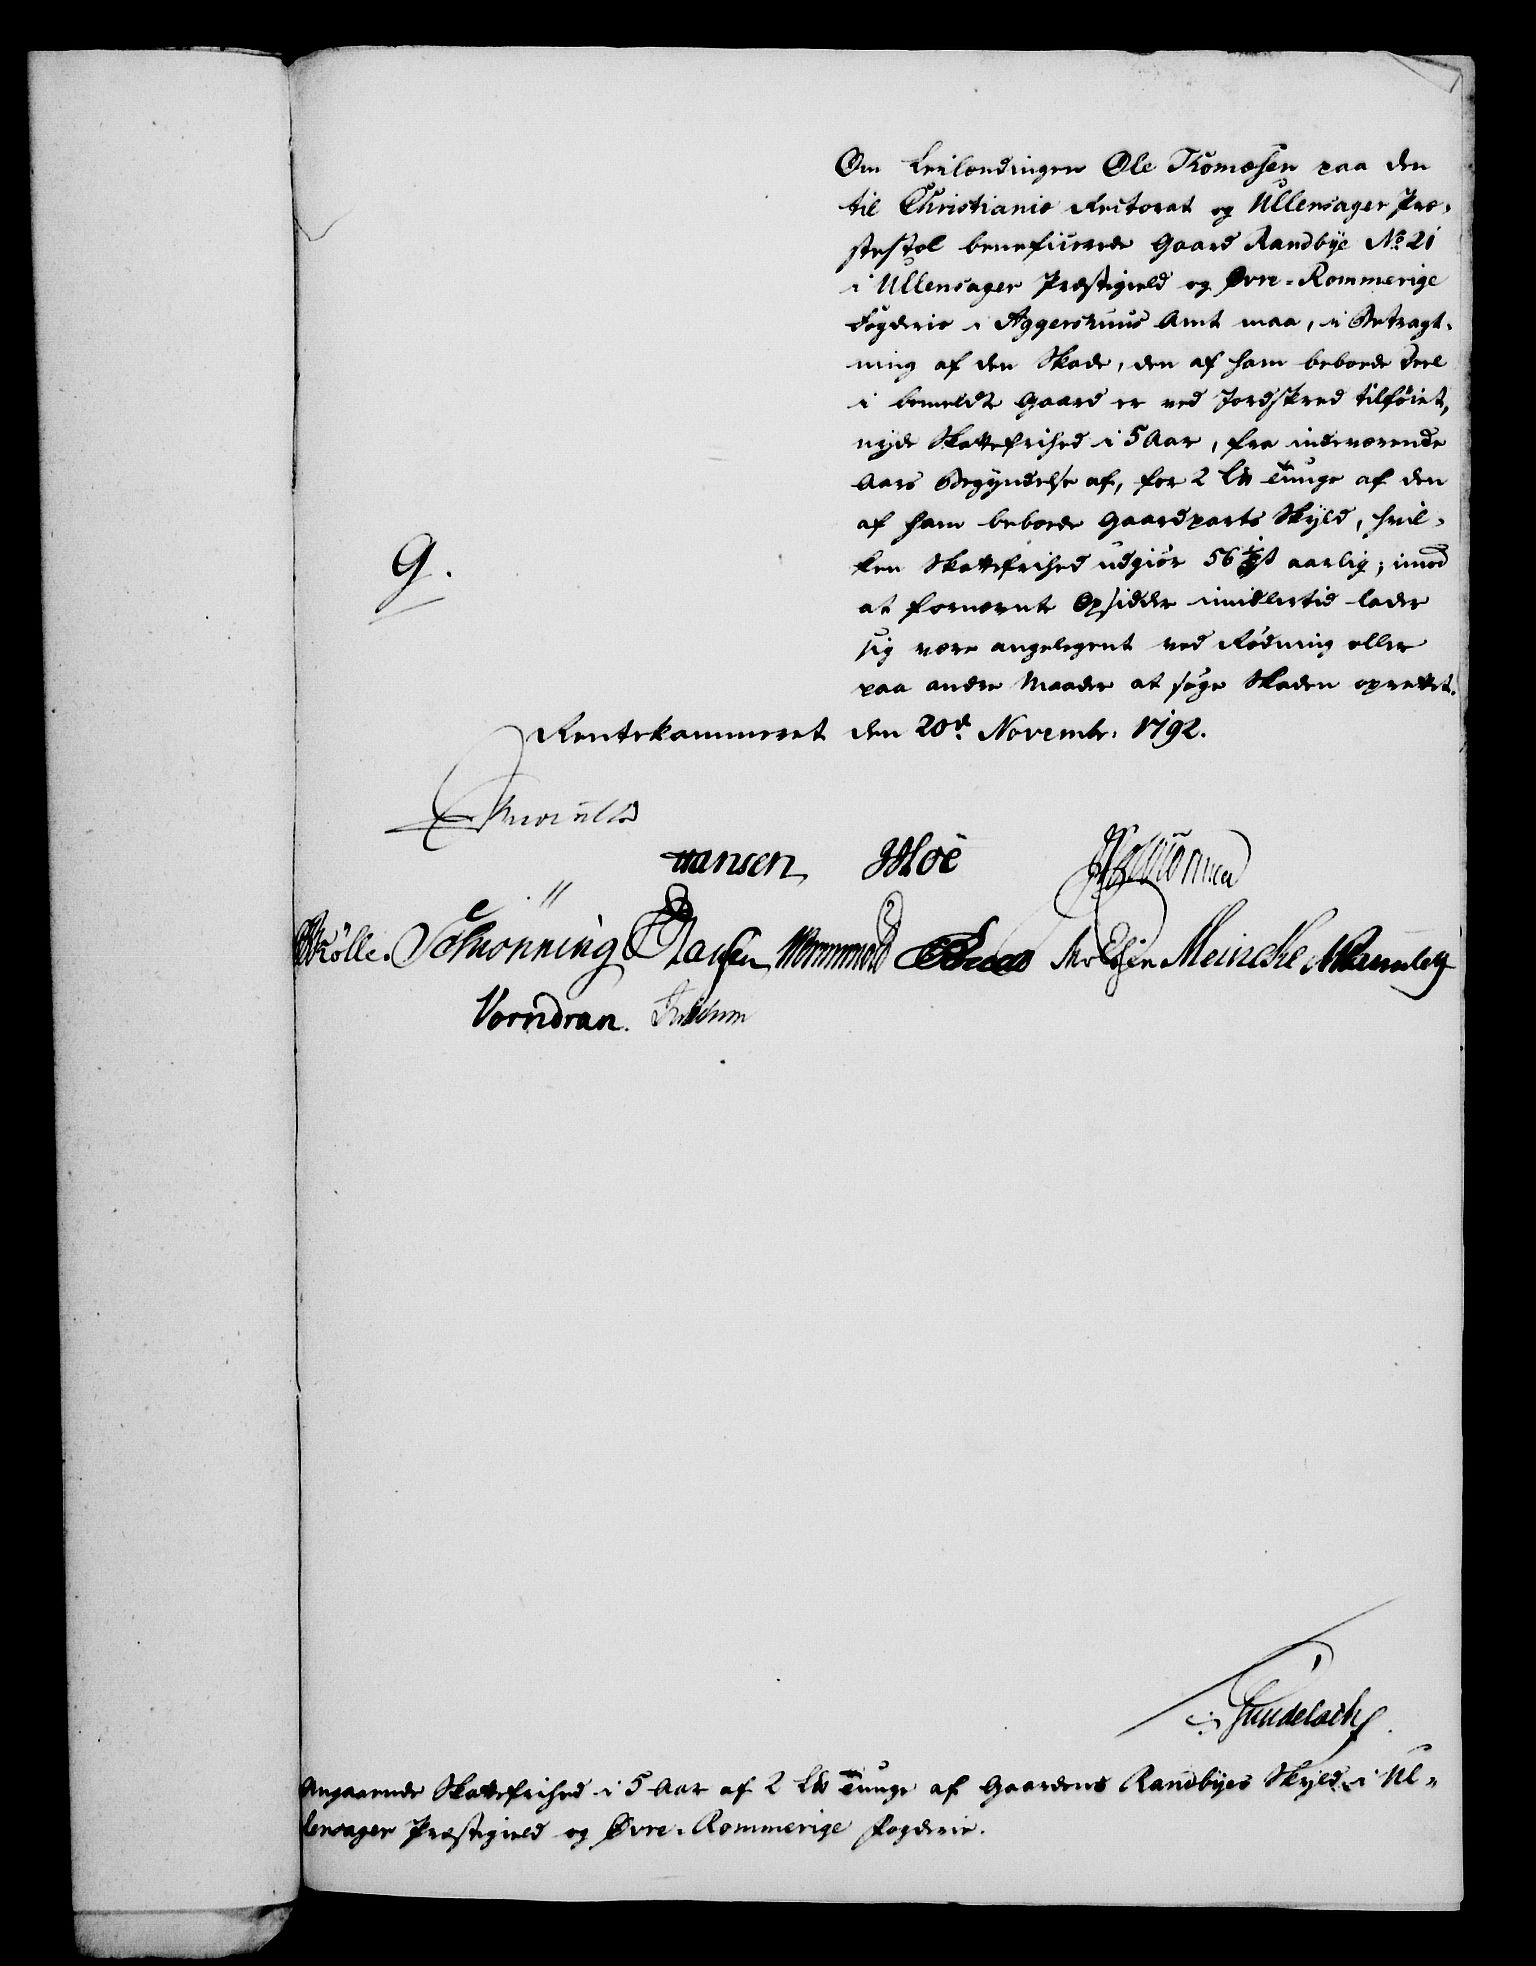 Om Leilændingen Ole Thomæsen paa den
til Christianiæ Rectorat og Ullensager Præ-
stestol beneficerede Gaard Randbye No 21
i Ullensager Præstegield og Øvre-Rommerige
Fogderie i Aggershuus Amt maa, i Betragt-
ning af den Skade, den af ham beboede Deel
i bemeldte Gaard er ved Jordskred tilføiet,
nyde Skattefrihed i 5 Aar, fra indeværende
Aars Begyndelse af, for 2 Lb Tunge af den
af ham beboede Gaardparts Skyld, hvil-
ken Skattefrihed udgiør 56 ½ s aarlig; imod
at fornævnte Opsidder imidlertid lader
sig være angelegent ved Rødning eller
paa andre Maader at søge Skaden oprettet.
9.
Rentekammeret den 20d Novembr. 1792.
Hansen Moë
Schønning Wormskiold Meincke
Vorndran.
Gundelach
Angaaende Skattefrihed i 5 Aar af 2 Lb Tunge af Gaardens Randbyes Skyld i Ul-
lensager Præstegield og Øvre-Rommerige Fogderie.